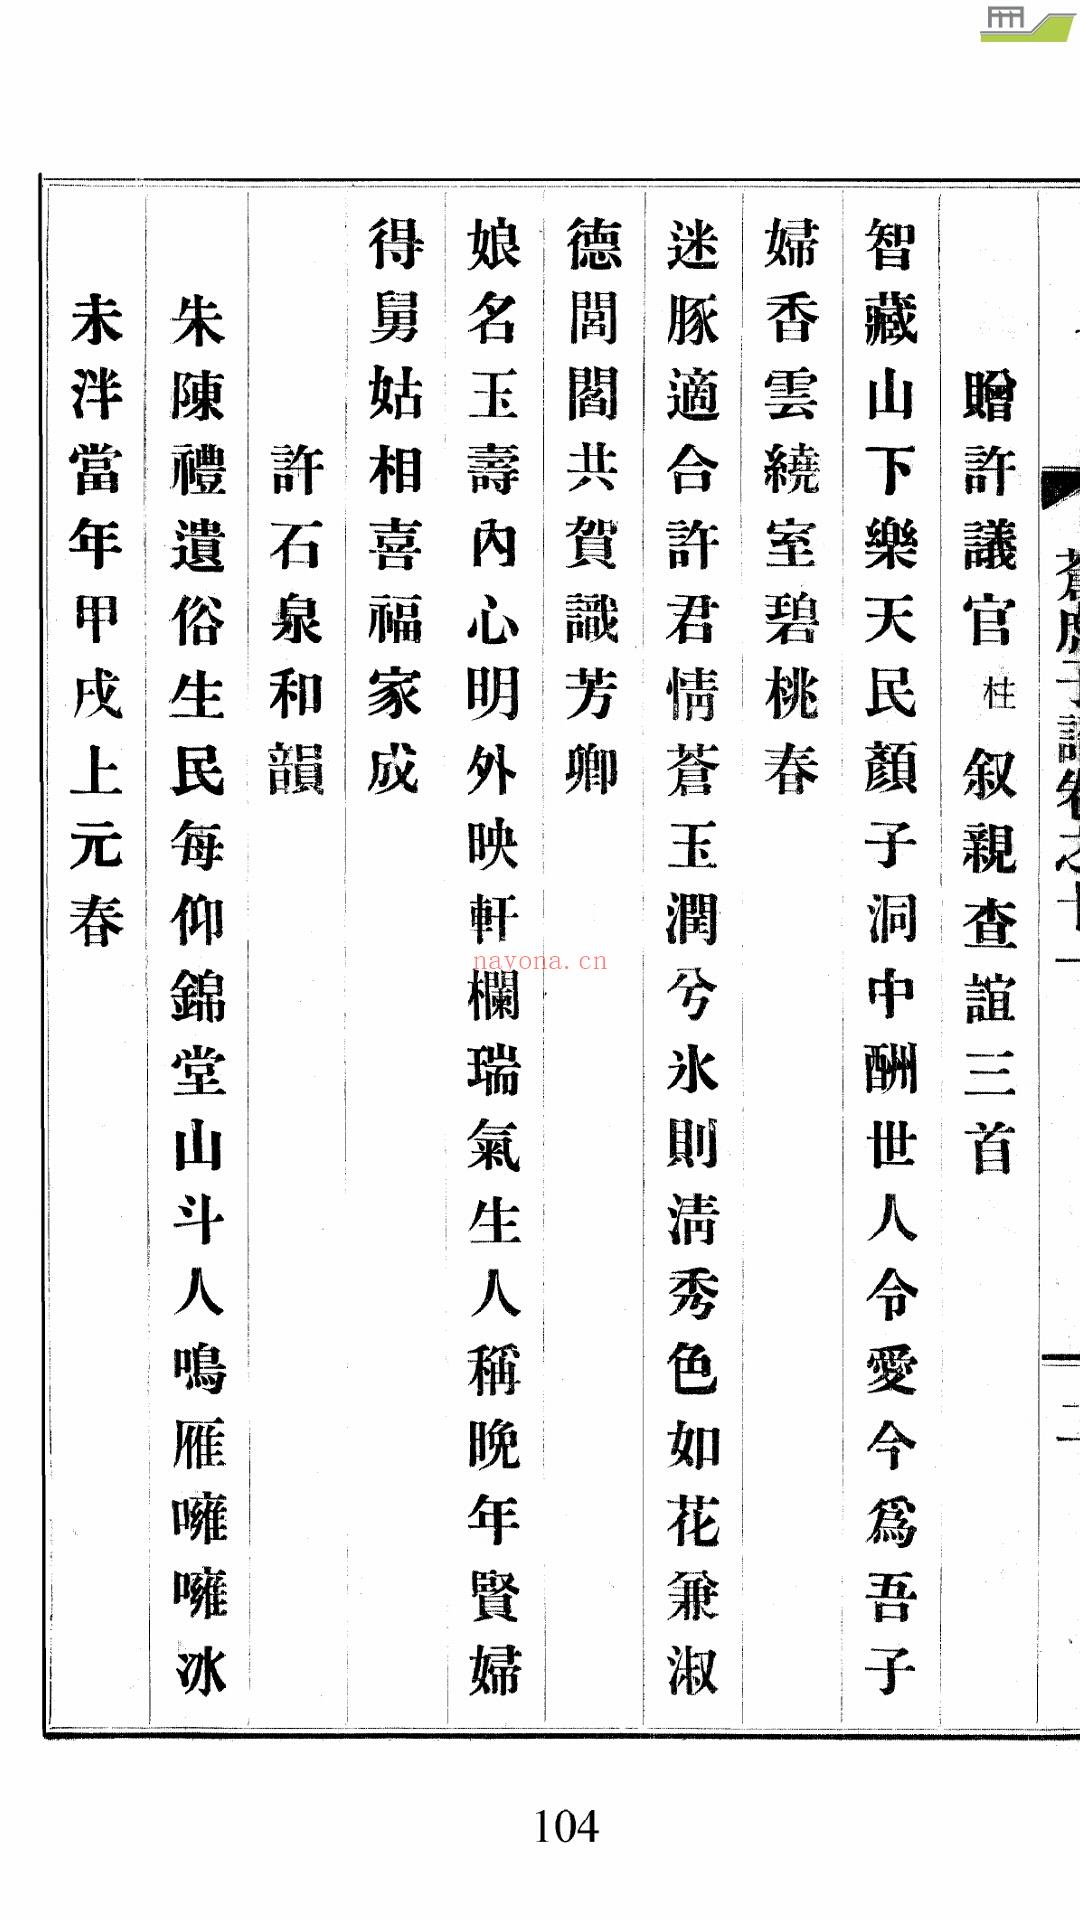 贈許議官柱叙親查誼三首
智藏山下樂天民顏子洞中酬世人令愛今爲吾子
婦香雲繞室碧桃春
迷豚適合許君情蒼玉潤兮氷則淸秀色如花兼淑
德閭閻共賀識芳卿
娘名玉壽內心明外映軒欄瑞氣生人稱晚年賢婦
得舅姑相喜福家成
許石泉和韻
朱陳禮遺俗生民每仰錦堂山斗人鳴雁嗈嗈冰
未泮當年甲戌上元春
nayona.cn
104